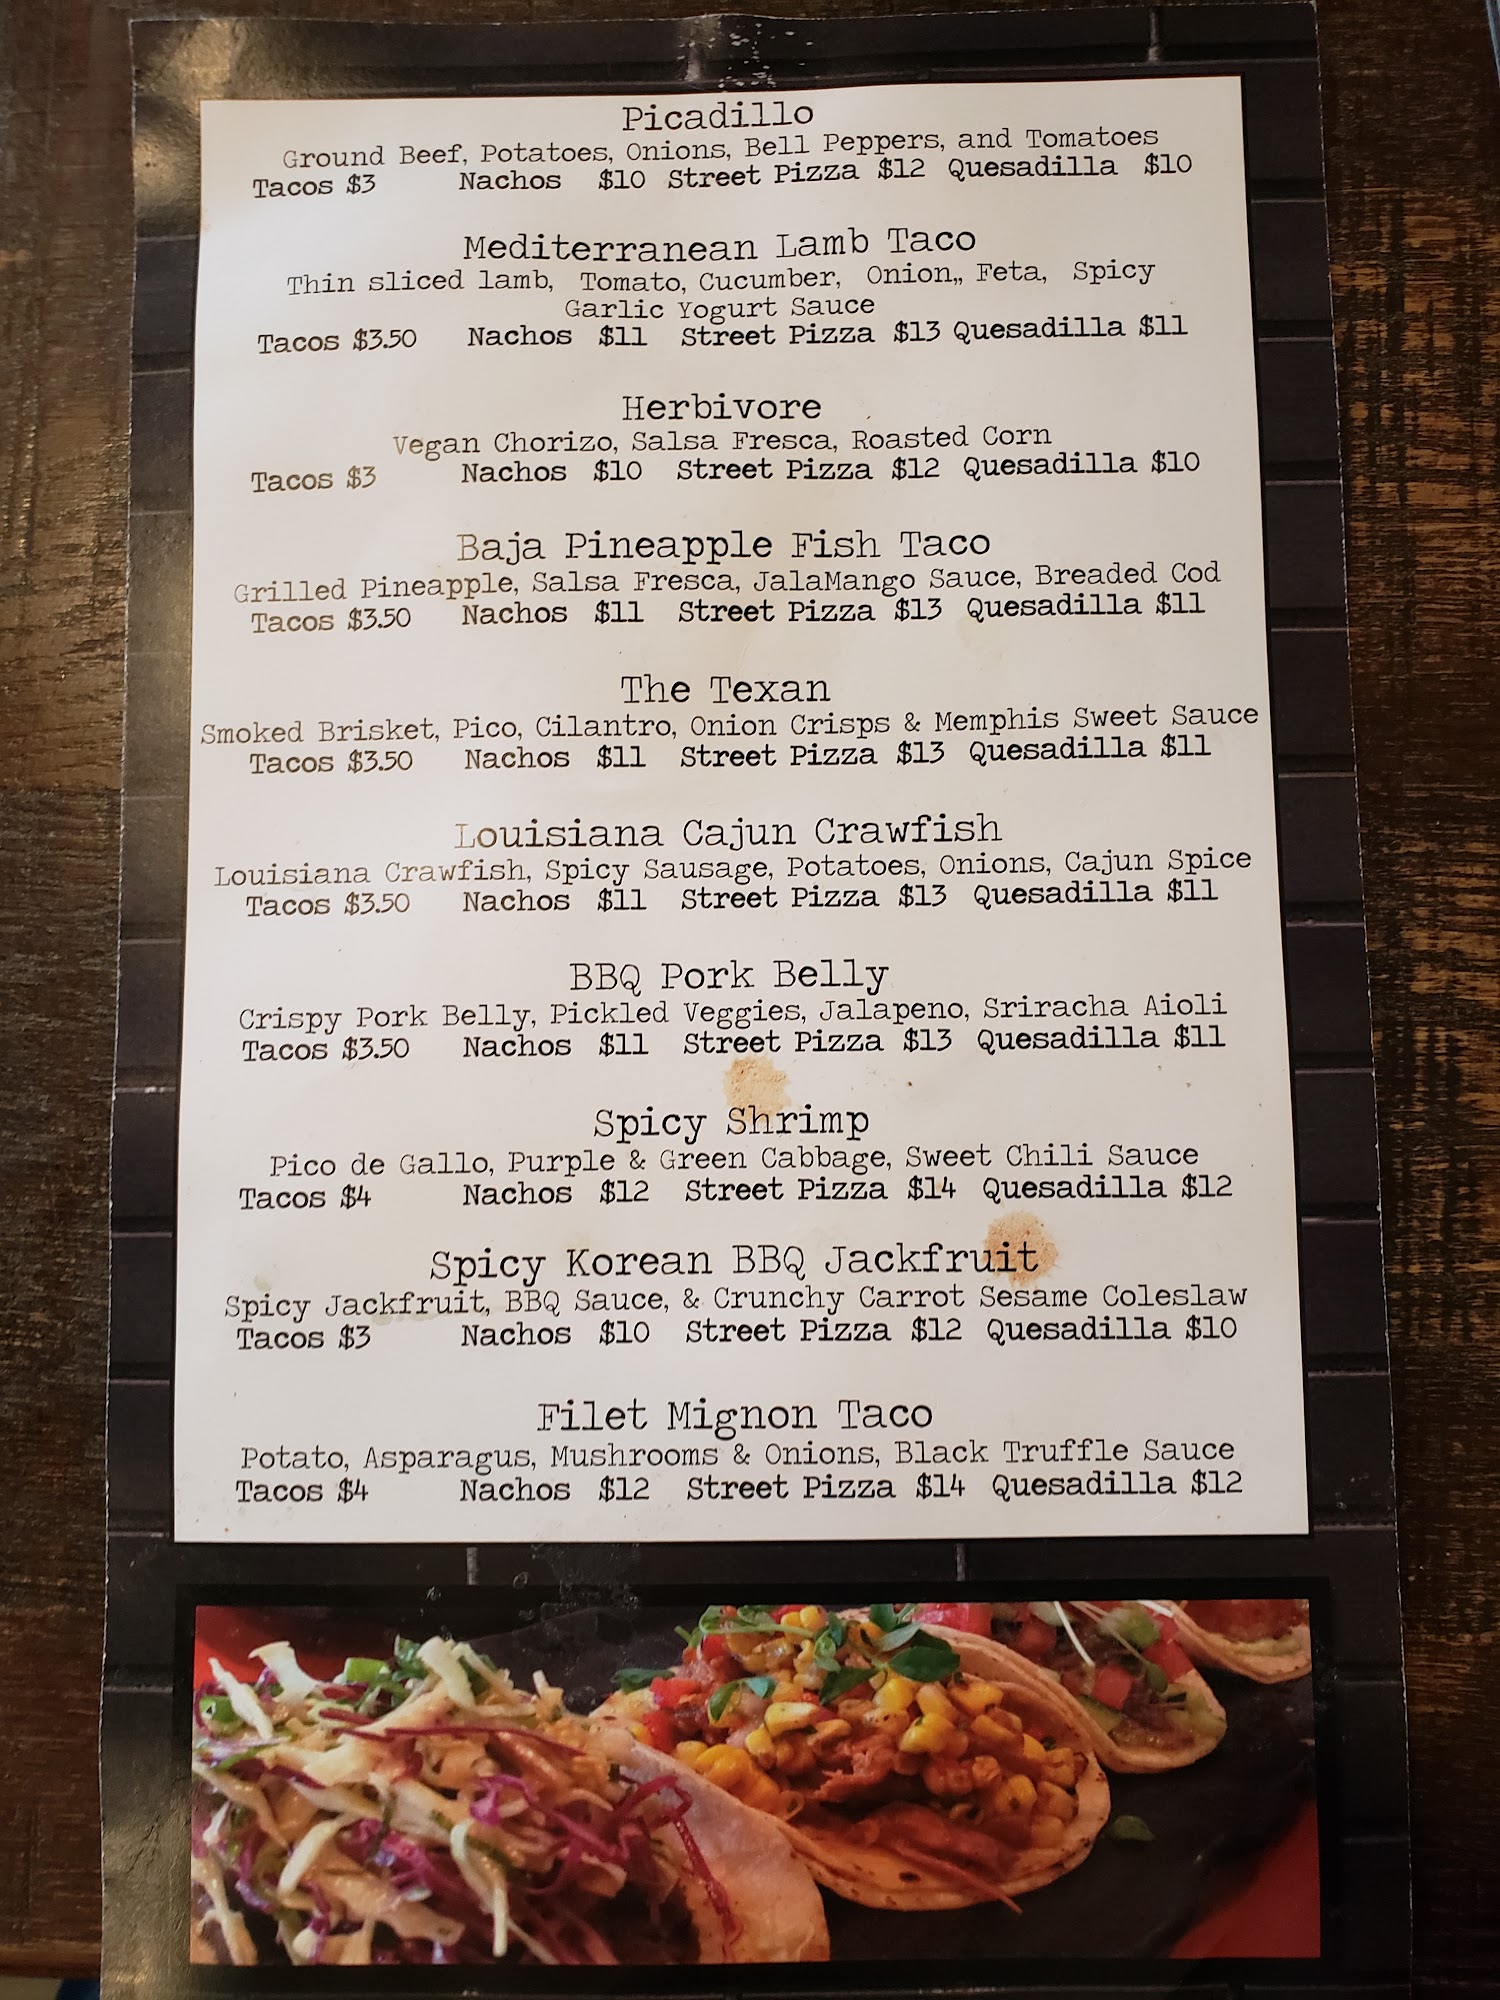 Picadillo
Ground Beef, Potatoes, Onions, Bell Peppers, and Tomatoes
Tacos $3 Nachos $10 Street Pizza $12 Quesadilla $10
Mediterranean Lamb Taco
Thin sliced lamb, Tomato, Cucumber, Onion,, Feta, Spicy
Garlic Yogurt Sauce
Tacos $3.50 Nachos $11 Street Pizza $13 Quesadilla $11
Herbivore
Vegan Chorizo, Salsa Fresca, Roasted Corn
Tacos $3 Nachos $10 Street Pizza $12 Quesadilla $10
Baja Pineapple Fish Taco
Grilled Pineapple, Salsa Fresca, JalaMango Sauce, Breaded Cod
Tacos $3.50 Nachos $11 Street Pizza $13 Quesadilla $11
The Texan
Smoked Brisket, Pico, Cilantro, Onion Crisps & Memphis Sweet Sauce
Tacos $3.50 Nachos $11 Street Pizza $13 Quesadilla $11
Louisiana Cajun Crawfish
Louisiana Crawfish, Spicy Sausage, Potatoes, Onions, Cajun Spice
Tacos $3.50 Nachos $11 Street Pizza $13 Quesadilla $11
BBQ Pork Belly
Crispy Pork Belly, Pickled Veggies, Jalapeno, Sriracha Aioli
Tacos $3.50 Nachos $11 Street Pizza $13 Quesadilla $11
Spicy Shrimp
Pico de Gallo, Purple & Green Cabbage, Sweet Chili Sauce
Tacos $4 Nachos $12 Street Pizza $14 Quesadilla $12
Spicy Korean BBQ Jackfruit
Spicy Jackfruit, BBQ Sauce, & Crunchy Carrot Sesame Coleslaw
Tacos $3 Nachos $10 Street Pizza $12 Quesadilla $10
Filet Mignon Taco
Potato, Asparagus, Mushrooms & Onions, Black Truffle Sauce
Tacos $4 Nachos $12 Street Pizza $14 Quesadilla $12